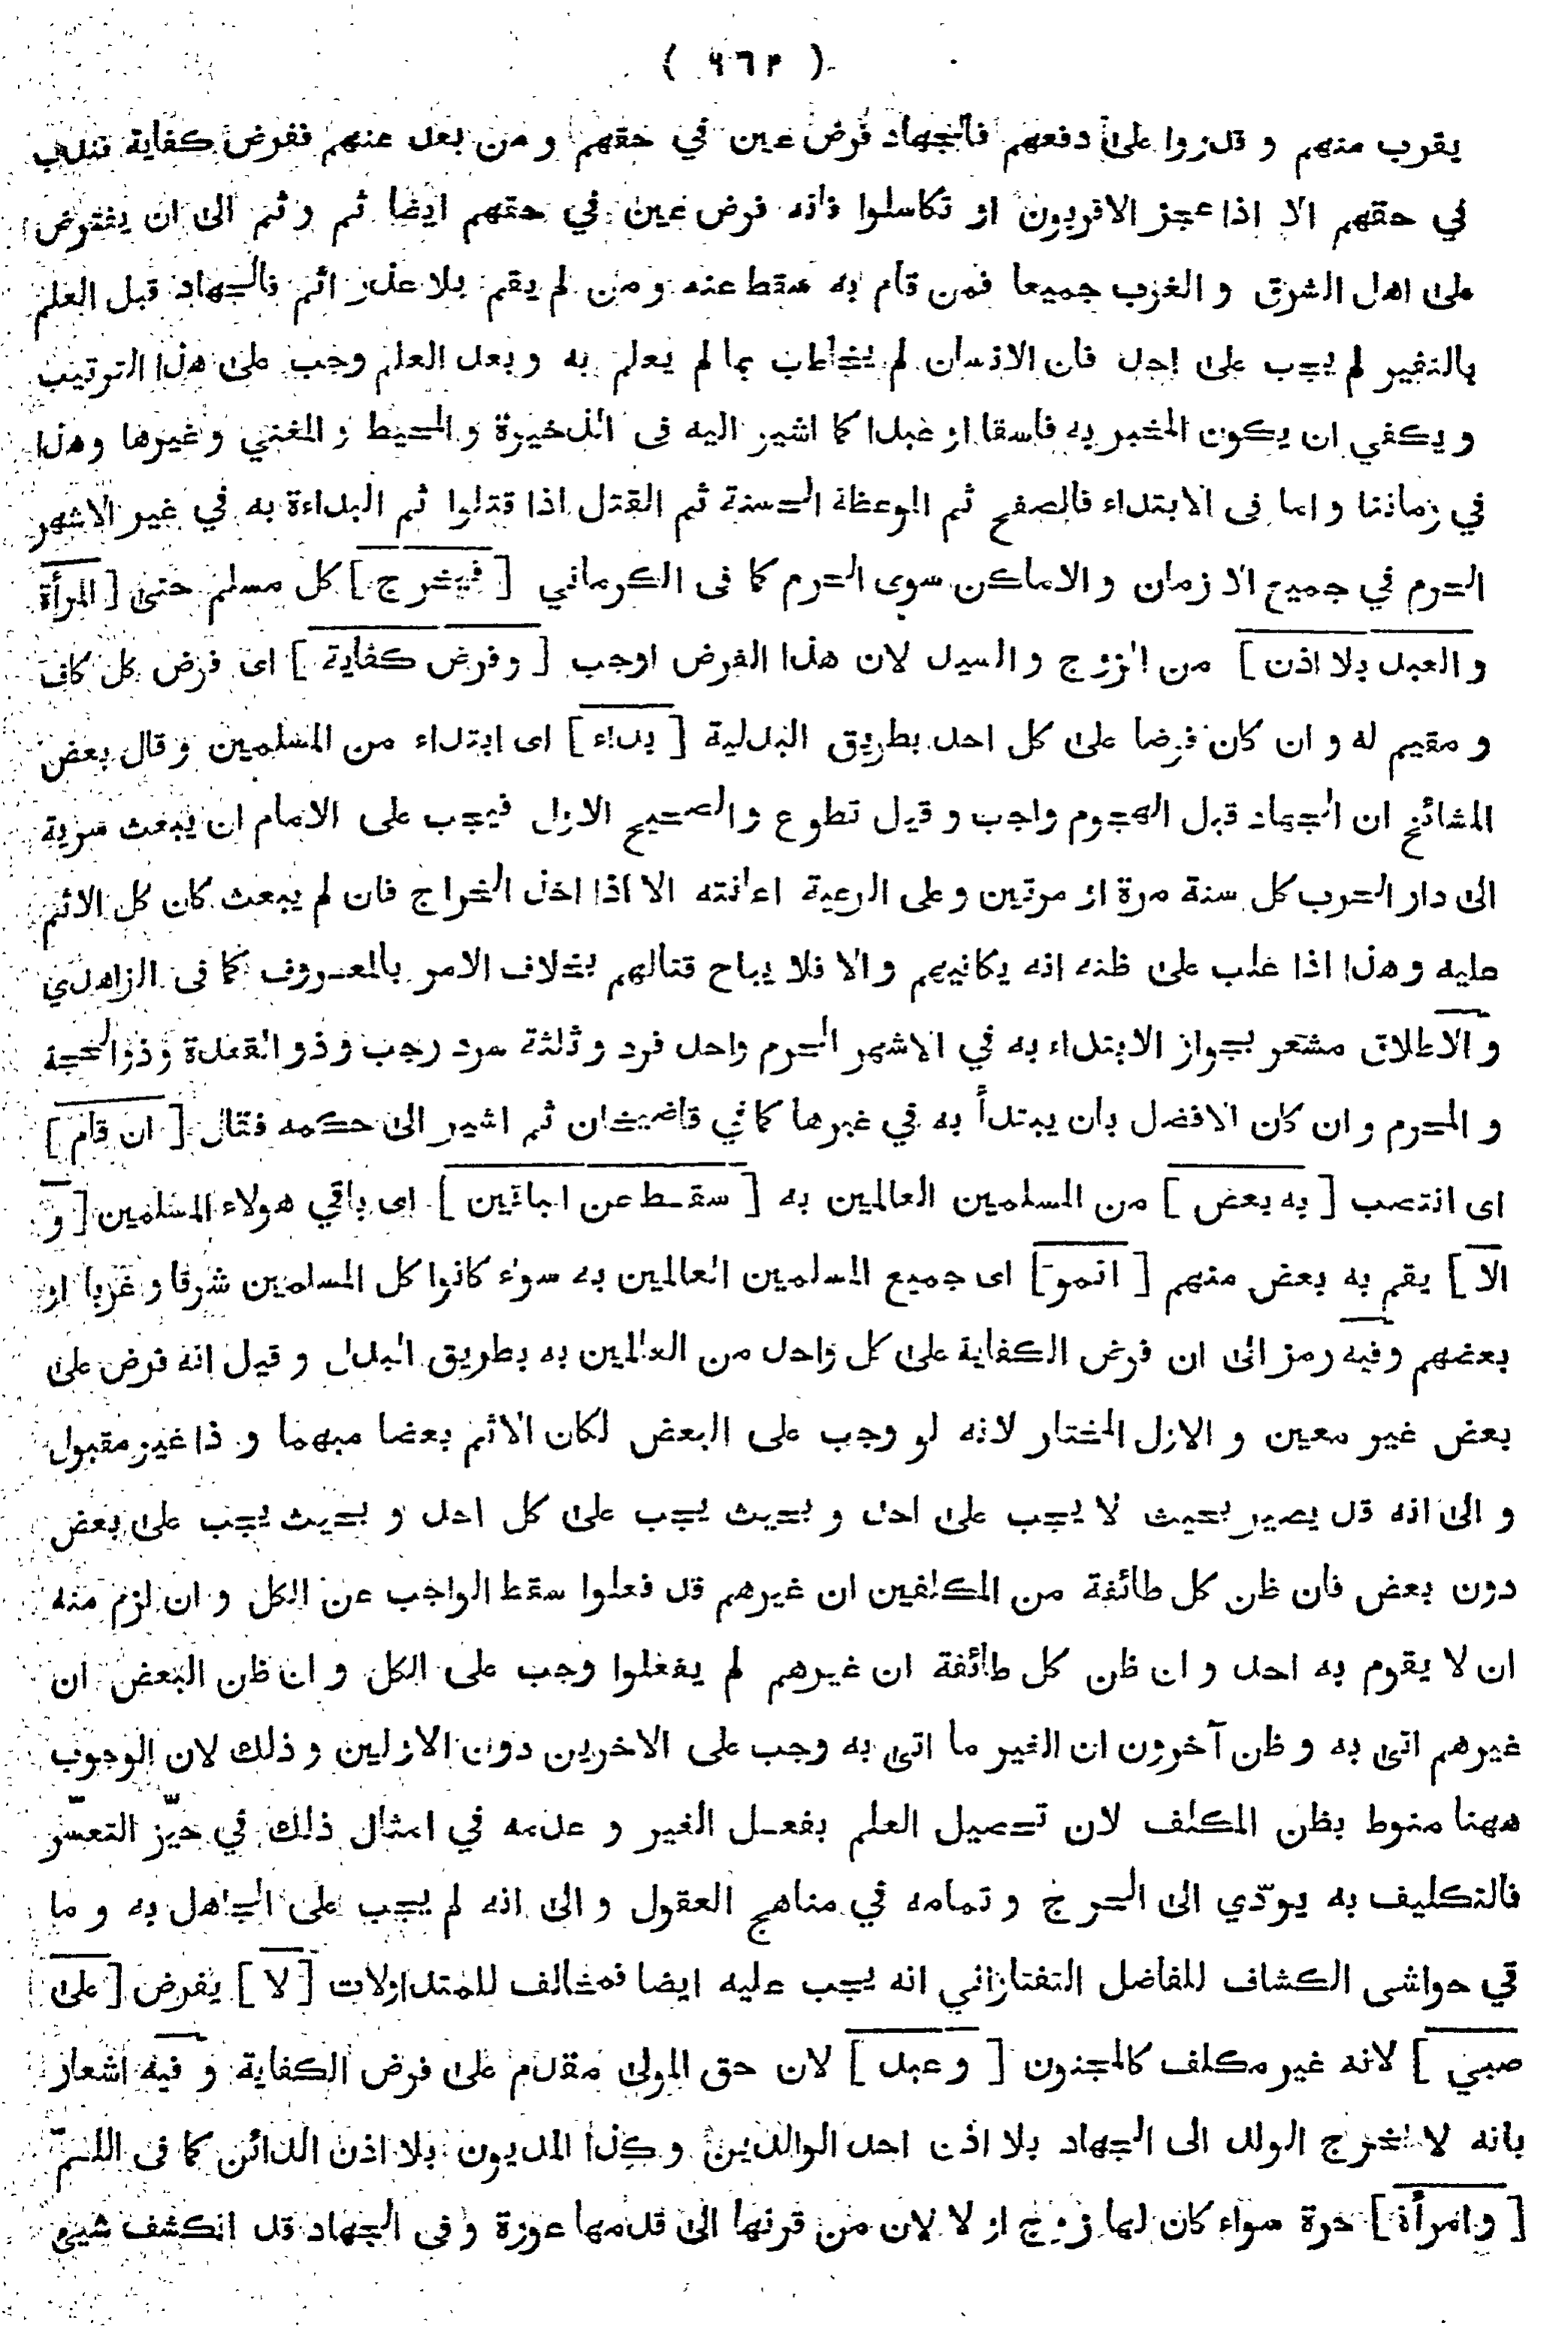 ( ٤٦٣ )
يقرب منهم و قدروا على دفعهم فالجهاد فرض عين في حقهم و من بعد عنهم ففرض كفاية
في حقهم الا اذا عجز الاقربون او تكاسلوا فانه فرض عين في حقهم ايضا ثم و ثم الى ان يفترض
على اهل الشرق و الغرب جميعا فمن قام به سقط عنه و من لم يقم بلا عذر اثم فالجهاد قبل العلم
بالنفير لم يجب على احد فان الانسان لم يخاطب بما لم يعلم به و بعد العلم وجب على هذا الترتيب
و يكفي ان يكون المخبر به فاسقا او عبدا كما اشير اليه فى الذخيرة و المحيط و المغني و غيرها وهذا
في زماننا و اما فى الابتداء فالصفح ثم الموعظة الحسنة ثم القتل اذا قتلوا ثم البداءة به في غير الاشهر
الحرم في جميع الازمان و الاماكن سوى الحرم كما فى الكرماني [ فيخرج ] كل مسلم حتى [ المرأة
و العبد بلا اذن ] من الزوج و السيد لان هذا الفرض اوجب [ و فرض كفاية ] اى فرض كل كاف
و مقيم له و ان كان فرضا على كل احد بطريق البدلية [ بداء ] اى ابتداء من المسلمين و قال بعض
المشائخ ان الجهاد قبل الهجوم واجب و قيل تطوع والصحيح الاول فيجب على الامام ان يبعث سرية
الى دار الحرب كل سنة مرة او مرتين و على الرعية اعانته الا اذا اخذ الخراج فان لم يبعث كان كل الاثم
عليه و هذا اذا غلب على ظنه انه يكافيهم و الا فلا يباح قتالهم بخلاف الامر بالمعروف كما فى الزاهدي
و الاطلاق مشعر بجواز الابتداء به في الاشهر الحرم واحد فرد و ثلثة سرد رجب و ذو القعدة و ذو الحجة
و المحرم و ان كان الافضل بان يبتدأ به في غيرها كما في قاضيخان ثم اشير الى حكمه فقال [ ان قام ]
اى انتصب [ به بعض ] من المسلمين العالمين به [ سقط عن الباقين ] اى باقي هولاء المسلمين [ و
الا ] يقم به بعض منهم [ اثموا ] اى جميع المسلمين العالمين به سواء كانوا كل المسلمين شرقا و غربا او
بعضهم وفيه رمز الى ان فرض الكفاية على كل واحد من العالمين به بطريق البدل و قيل انه فرض على
بعض غير معين و الاول المختار لانه لو وجب على البعض لكان الاثم بعضا مبهما و ذا غير مقبول
و الى انه قد يصير بحيث لا يجب على احد و بحيث يجب على كل احد و بحيث يجب على بعض
دون بعض فان ظن كل طائفة من المكلفين ان غيرهم قد فعلوا سقط الواجب عن الكل و ان لزم منه
ان لا يقوم به احد و ان ظن كل طائفة ان غيرهم لم يفعلوا وجب على الكل و ان ظن البعض ان
غيرهم اتى به و ظن آخرون ان الغير ما اتى به وجب على الاخرين دون الاولين و ذلك لان الوجوب
ههنا منوط بظن المكلف لان تحصيل العلم بفعل الغير و عدمه في امثال ذلك في حيّز التعسّر
فالتكليف به يودّي الى الحرج و تمامه في مناهج العقول و الى انه لم يجب على الجاهل به و ما
في حواشى الكشاف للفاضل التفتازاني انه يجب عليه ايضا فمخالف للمتداولات [ لا ] يفرض [ على
صبي ] لانه غير مكلف كالمجنون [ و عبد ] لان حق المولى مقدم على فرض الكفاية و فيه اشعار
بانه لا يخرج الولد الى الجهاد بلا اذن احد الوالدين و كذا المديون بلا اذن الدائن كما فى
[ و امرأة ] حرة سواء كان لها زوج او لا لان من قرنها الى قدمها عورة و فى الجهاد قد انكشف شيئ